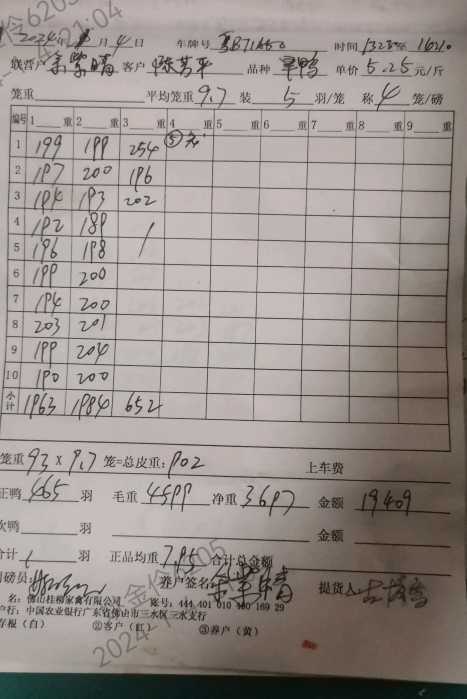 2024年 月4日 车牌号 时间
联营户 客户 陈艺平 品种 旱鸭 单价5.25元/斤
笼重 平均笼重9.7 装5羽/笼 称4笼/磅
编号 1 重 2 重 3 重 4 重 5 重 6 重 7 重 8 重 9 重
1 199 199 254
2 197 200 196
3 194 193 202
4 192 189 /
5 196 198
6 199 200
7 194 200
8 203 201
9 199 204
10 190 200
小计 1963 1984 652
笼重93×9.7笼=总皮重:902 上车费
正鸭465羽 毛重4599 净重3697 金额19409
次鸭 羽 金额
合计 羽 正品均重7.95 合计总金额
司磅员: 养户签名: 提货人
名:佛山桂柳家禽有限公司 账号:444 401 010 400 169 29
户行:中国农业银行广东省佛山市三水区三水支行
存根(白) ②客户(红) ③养户(黄)